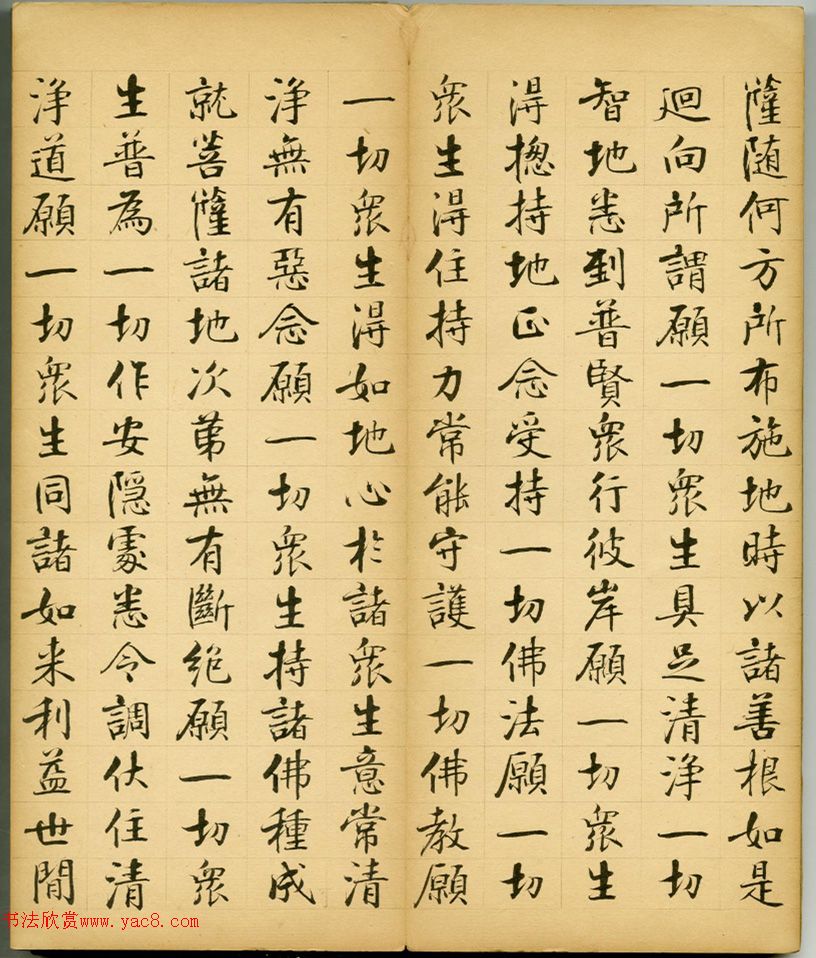 薩隨何方所布施地時以諸善根如是
迴向所謂願一切衆生具足清淨一切
智地悉到普賢衆行彼岸願一切衆生
得揔持地正念受持一切佛法願一切
衆生得住持力常能守護一切佛教願
一切衆生得如地心於諸衆生意常清
淨無有惡念願一切衆生持諸佛種成
就菩薩諸地次第無有斷絶願一切衆
生普為一切作安隱處悉令調伏住清
淨道願一切衆生同諸如来利益世間
书法欣赏www.yac8.com